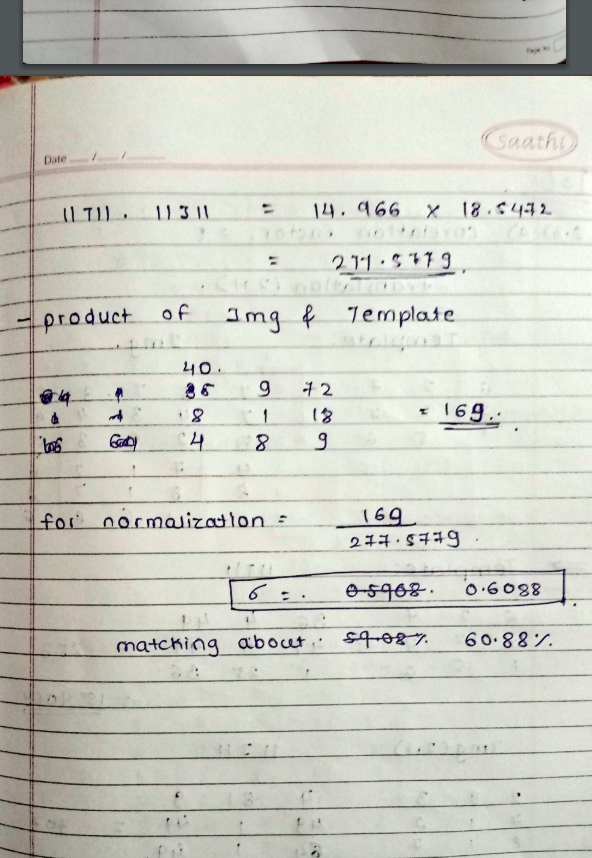 Page No.
Saathi
Date __/__/____
||T||. ||I|| = 14.966 × 18.5472
= 277.5779.
- product of Img & Template
40.
36 9 72
8 1 18 = 169.
4 8 9
for normalization = 169
277.5779.
σ = . 0.5908. 0.6088
matching about. 59.08%. 60.88%.